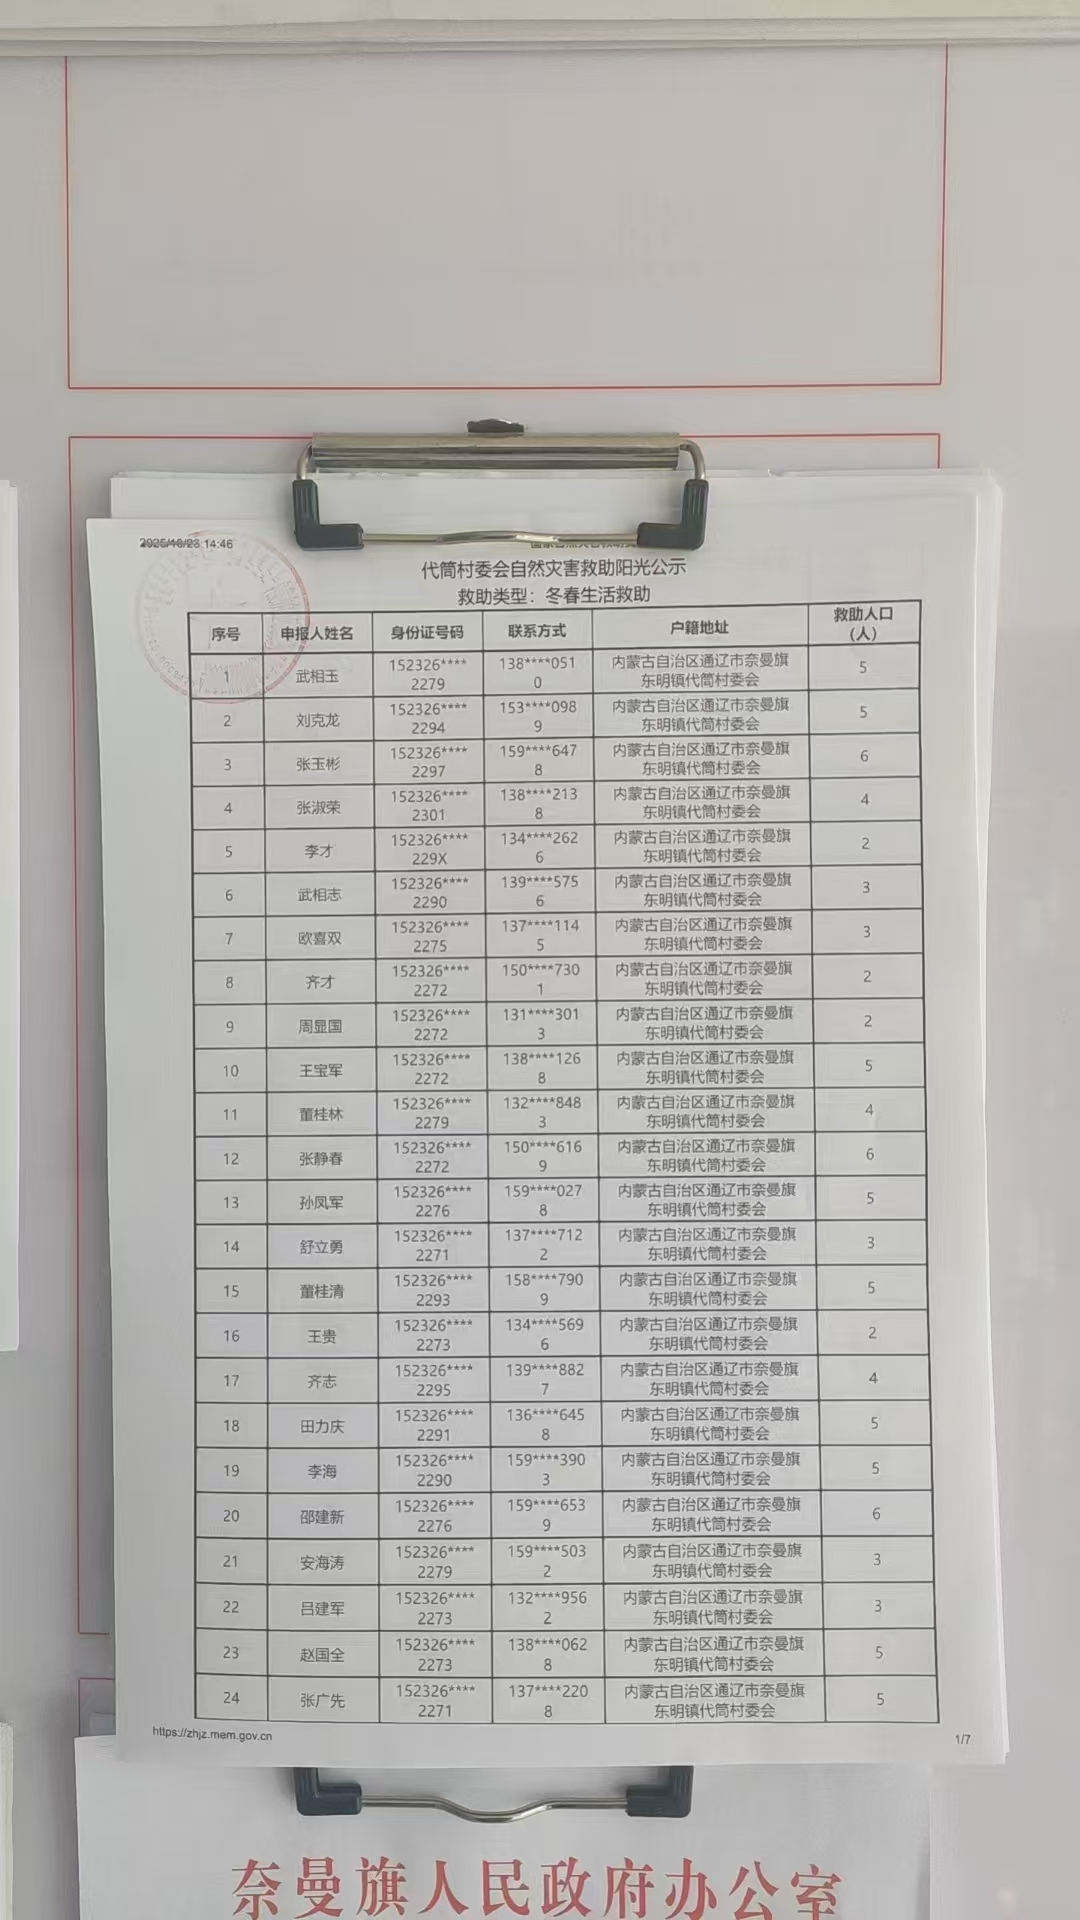 2025/10/23 14:46
代筒村委会自然灾害救助阳光公示
救助类型：冬春生活救助
序号 申报人姓名 身份证号码 联系方式 户籍地址 救助人口（人）
1 武相玉 152326****2279 138****0510 内蒙古自治区通辽市奈曼旗东明镇代筒村委会 5
2 刘克龙 152326****2294 153****0989 内蒙古自治区通辽市奈曼旗东明镇代筒村委会 5
3 张玉彬 152326****2297 159****6478 内蒙古自治区通辽市奈曼旗东明镇代筒村委会 6
4 张淑荣 152326****2301 138****2138 内蒙古自治区通辽市奈曼旗东明镇代筒村委会 4
5 李才 152326****229X 134****2626 内蒙古自治区通辽市奈曼旗东明镇代筒村委会 2
6 武相志 152326****2290 139****5756 内蒙古自治区通辽市奈曼旗东明镇代筒村委会 3
7 欧喜双 152326****2275 137****1145 内蒙古自治区通辽市奈曼旗东明镇代筒村委会 3
8 齐才 152326****2272 150****7301 内蒙古自治区通辽市奈曼旗东明镇代筒村委会 2
9 周显国 152326****2272 131****3013 内蒙古自治区通辽市奈曼旗东明镇代筒村委会 2
10 王宝军 152326****2272 138****1268 内蒙古自治区通辽市奈曼旗东明镇代筒村委会 5
11 董桂林 152326****2279 132****8483 内蒙古自治区通辽市奈曼旗东明镇代筒村委会 4
12 张静春 152326****2272 150****6169 内蒙古自治区通辽市奈曼旗东明镇代筒村委会 6
13 孙凤军 152326****2276 159****0278 内蒙古自治区通辽市奈曼旗东明镇代筒村委会 5
14 舒立勇 152326****2271 137****7122 内蒙古自治区通辽市奈曼旗东明镇代筒村委会 3
15 董桂清 152326****2293 158****7909 内蒙古自治区通辽市奈曼旗东明镇代筒村委会 5
16 王贵 152326****2273 134****5696 内蒙古自治区通辽市奈曼旗东明镇代筒村委会 2
17 齐志 152326****2295 139****8827 内蒙古自治区通辽市奈曼旗东明镇代筒村委会 4
18 田力庆 152326****2291 136****6458 内蒙古自治区通辽市奈曼旗东明镇代筒村委会 5
19 李海 152326****2290 159****3903 内蒙古自治区通辽市奈曼旗东明镇代筒村委会 5
20 邵建新 152326****2276 159****6539 内蒙古自治区通辽市奈曼旗东明镇代筒村委会 6
21 安海涛 152326****2279 159****5032 内蒙古自治区通辽市奈曼旗东明镇代筒村委会 3
22 吕建军 152326****2273 132****9562 内蒙古自治区通辽市奈曼旗东明镇代筒村委会 3
23 赵国全 152326****2273 138****0628 内蒙古自治区通辽市奈曼旗东明镇代筒村委会 5
24 张广先 152326****2271 137****2208 内蒙古自治区通辽市奈曼旗东明镇代筒村委会 5
https://zhjz.mem.gov.cn 1/7
奈曼旗人民政府办公室